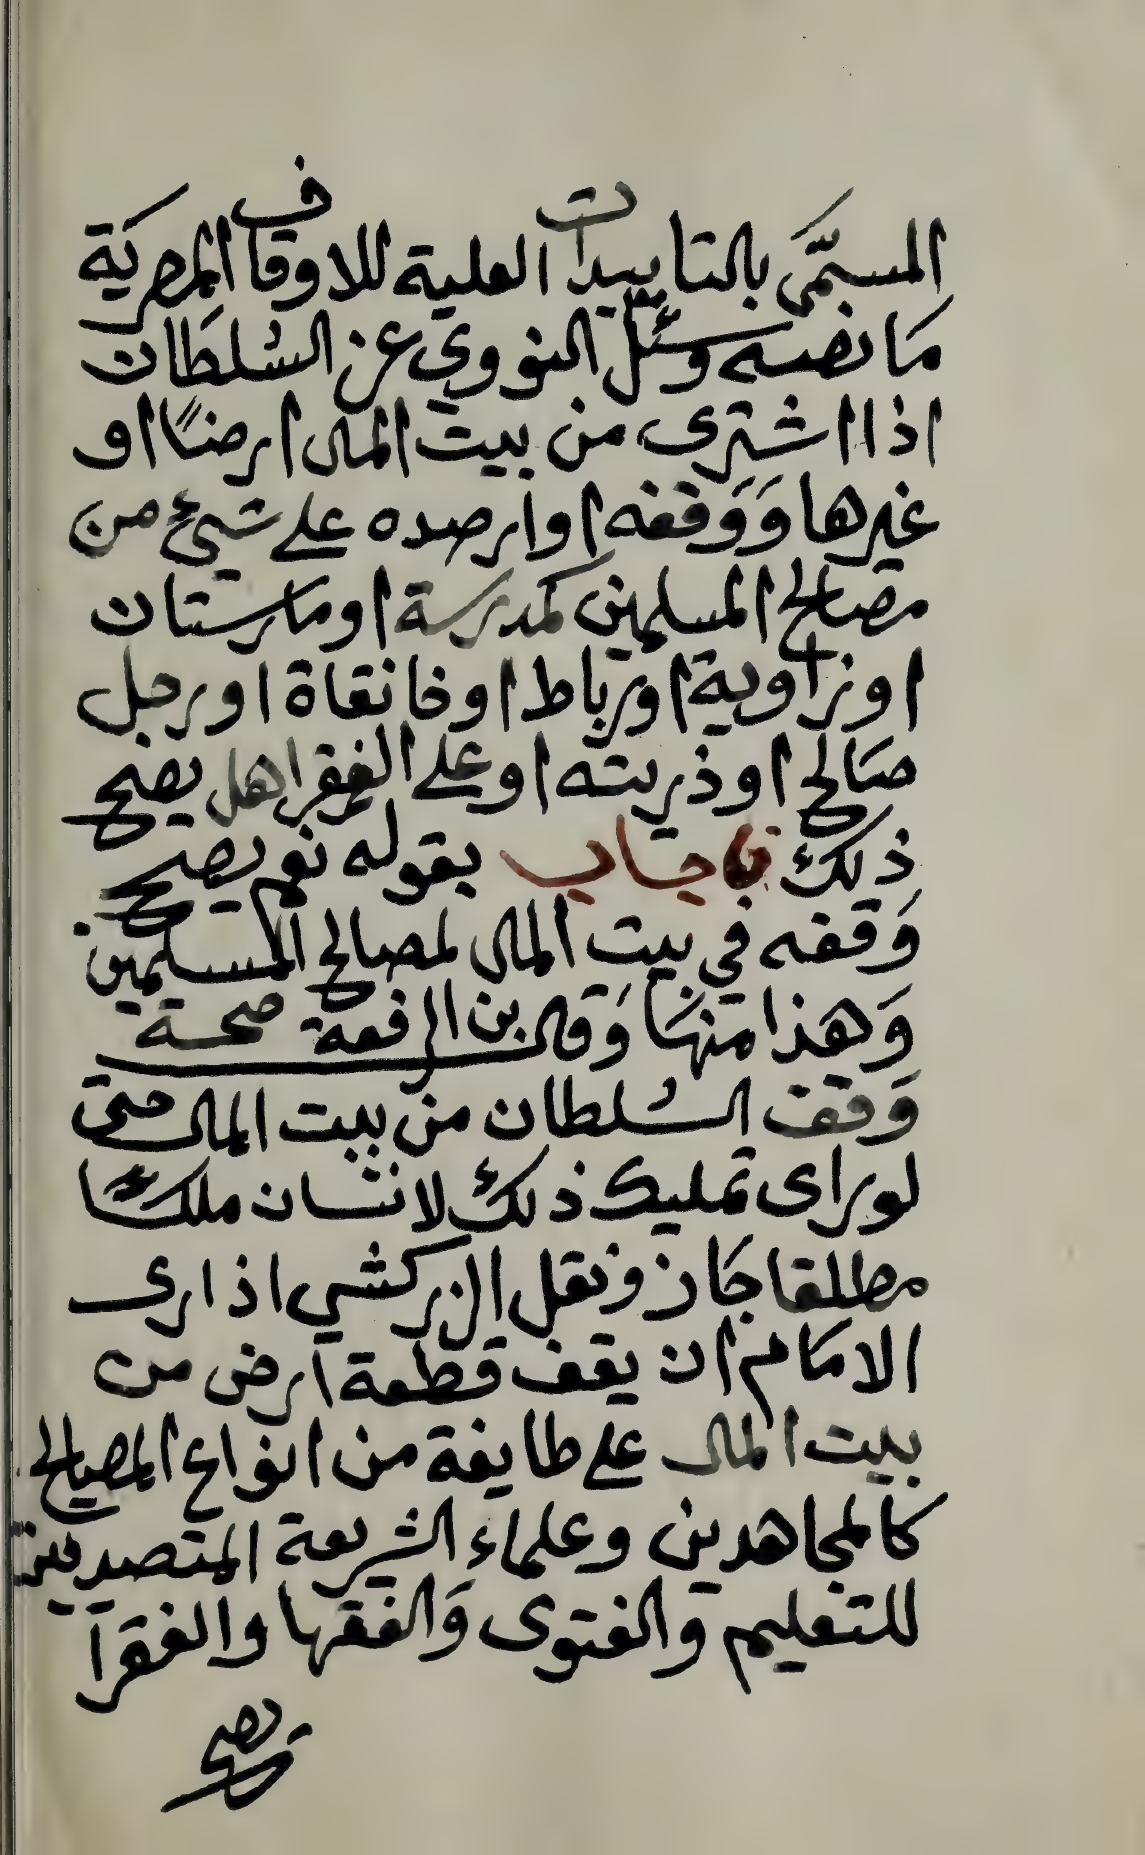 المسمَّى بالتاييدات العلية للاوقاف المصرية
مَا نصه وسئل النووي عن السُلطَان
اذا اشترى من بيت المال ارضًا او
غيرها وَوَقفه او ارصده على شيئ من
مصالح المسلمين كمدرسة او مَارستان
او زاوية او رباط او خانقاة او رجل
صَالح او ذريته او على الفقرا هل يصح
ذلك فاجاب بقوله نعم يصح
وَقفه في بيت المال لمصالح المسلمين
وَهذا منهَا وَقال بن الرفعة صحة
وَقف السُلطان من بيت المال حتى
لو راى تمليك ذلك لانسان ملكًا
مطلقا جَاز ونقل الزركشي اذا رى
الامَام ان يقف قطعة ارض من
بيت المال على طايفة من انواع المصالح
كالمجاهدين وعلماء الشريعة المتصدين
للتعليم والفتوى وَالفقها والفقرآ
تصح